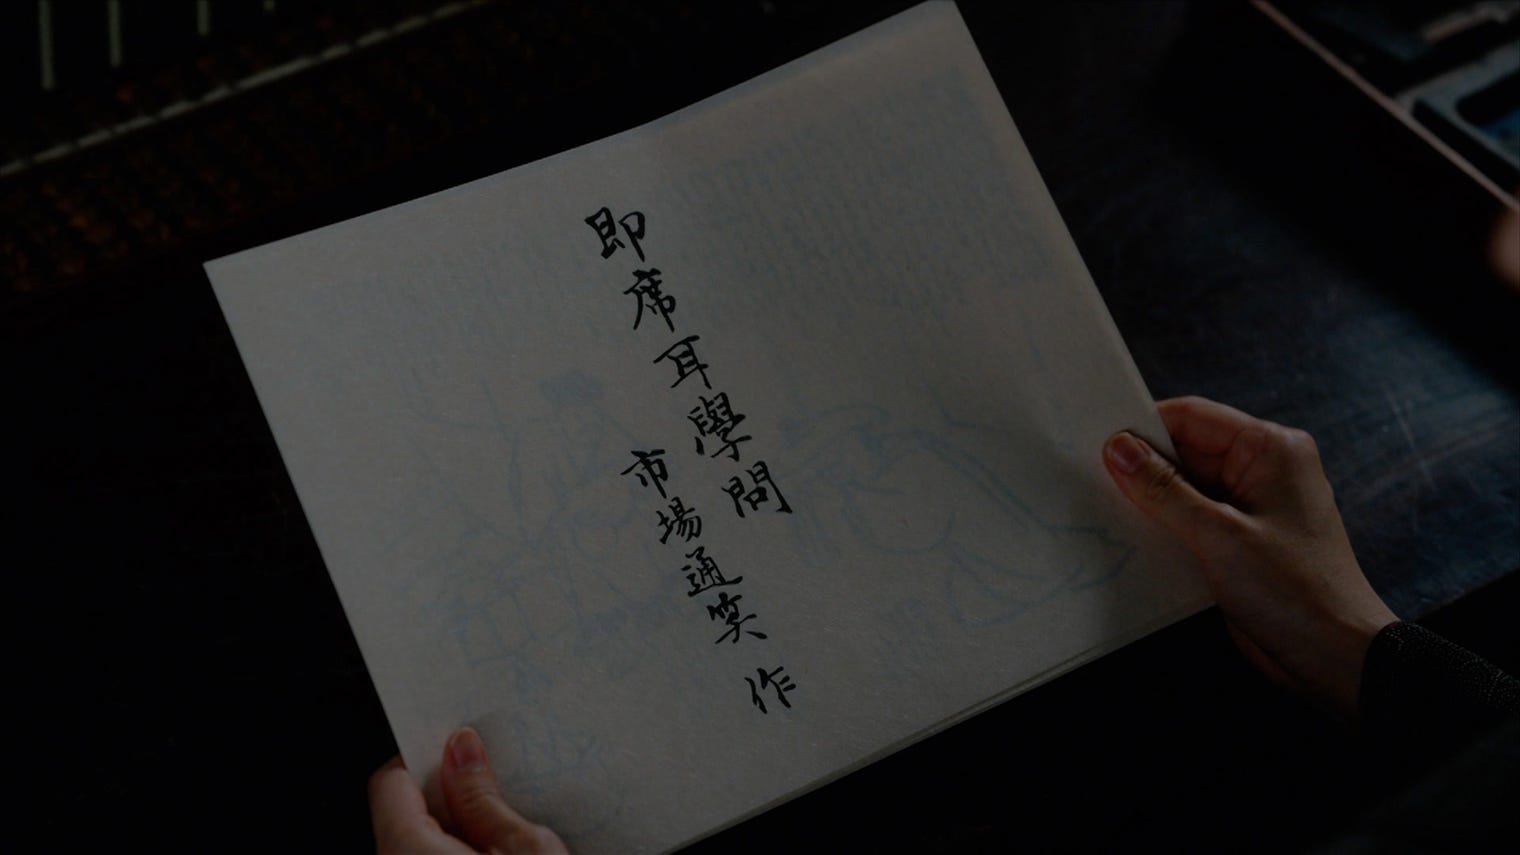 即席耳學問
市場通笑 作